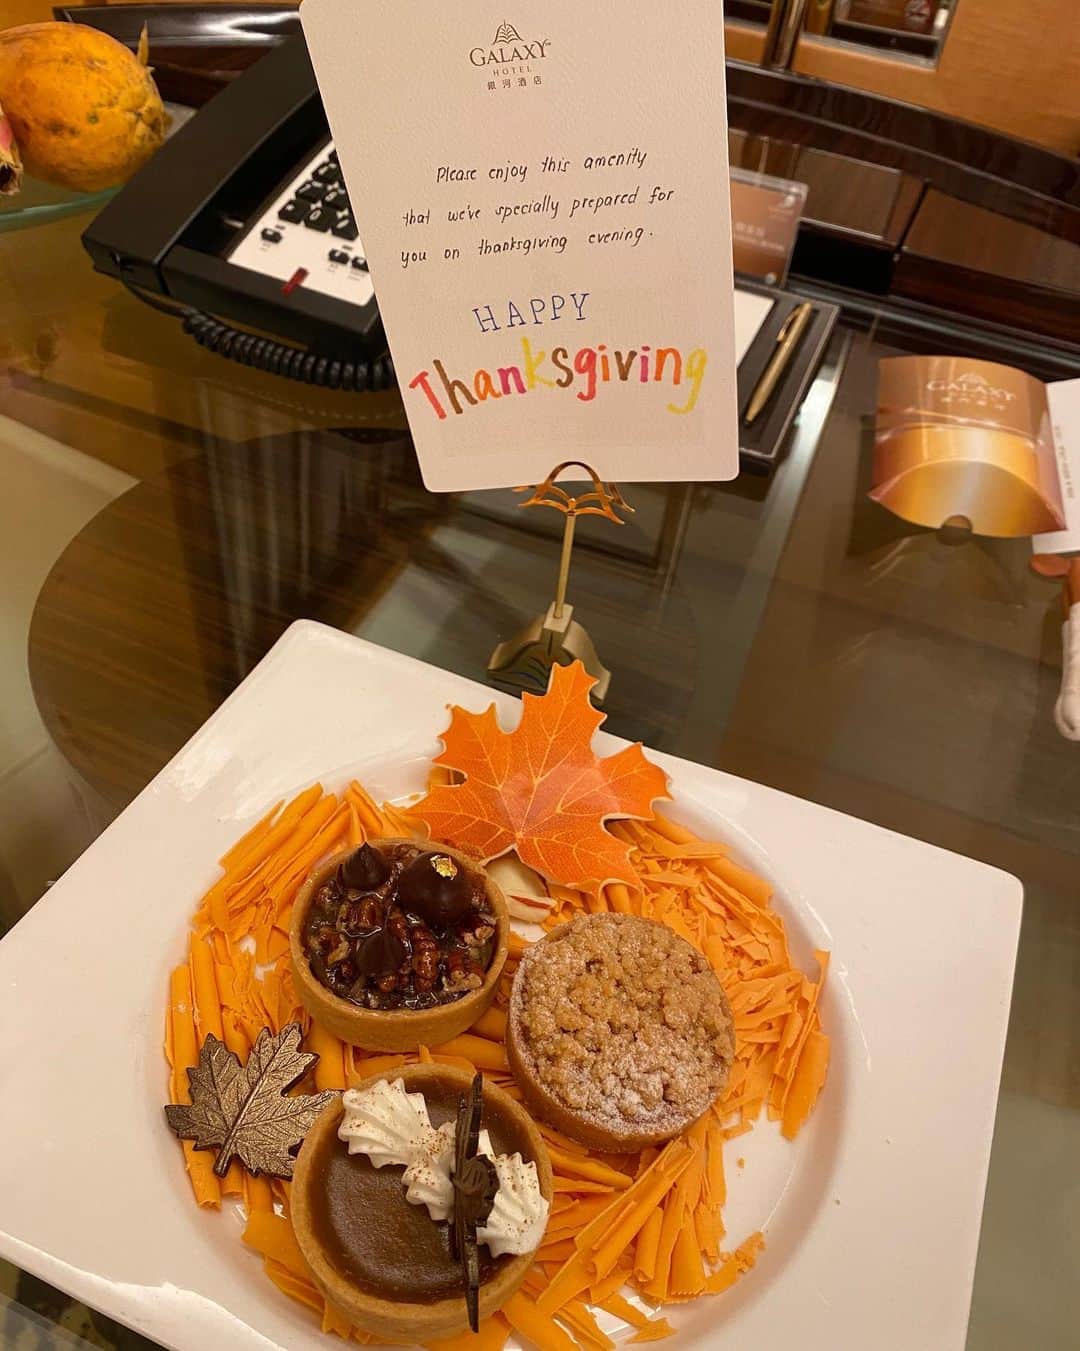 GALAXY™
HOTEL
銀河酒店
Please enjoy this amenity
that we've specially prepared for
you on thanksgiving evening.
HAPPY
Thanksgiving
GALAXY